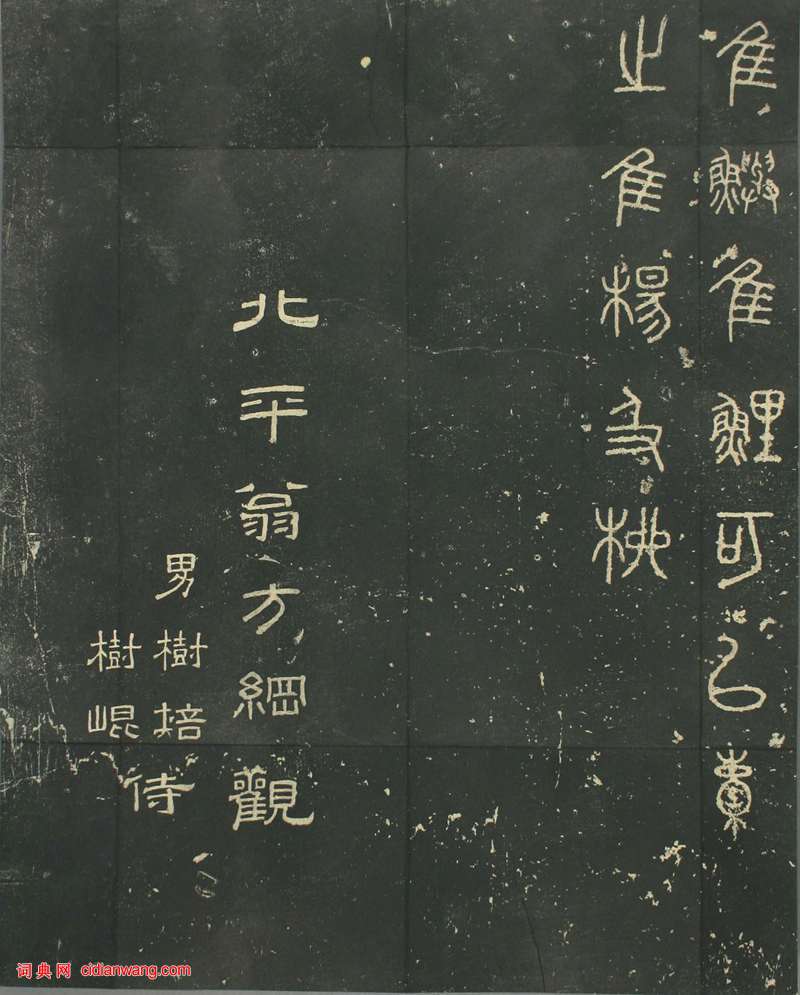 隹鱮隹鯉可㠯橐
之隹楊及柳
北平翁方綱觀
男樹培
樹崐
侍
词典网 cidianwang.com